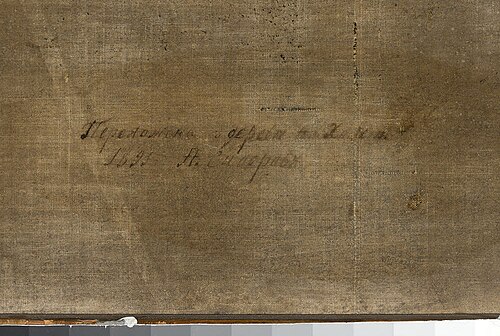 Переложена с дерева на холстъ
1891 А. Сидоровъ